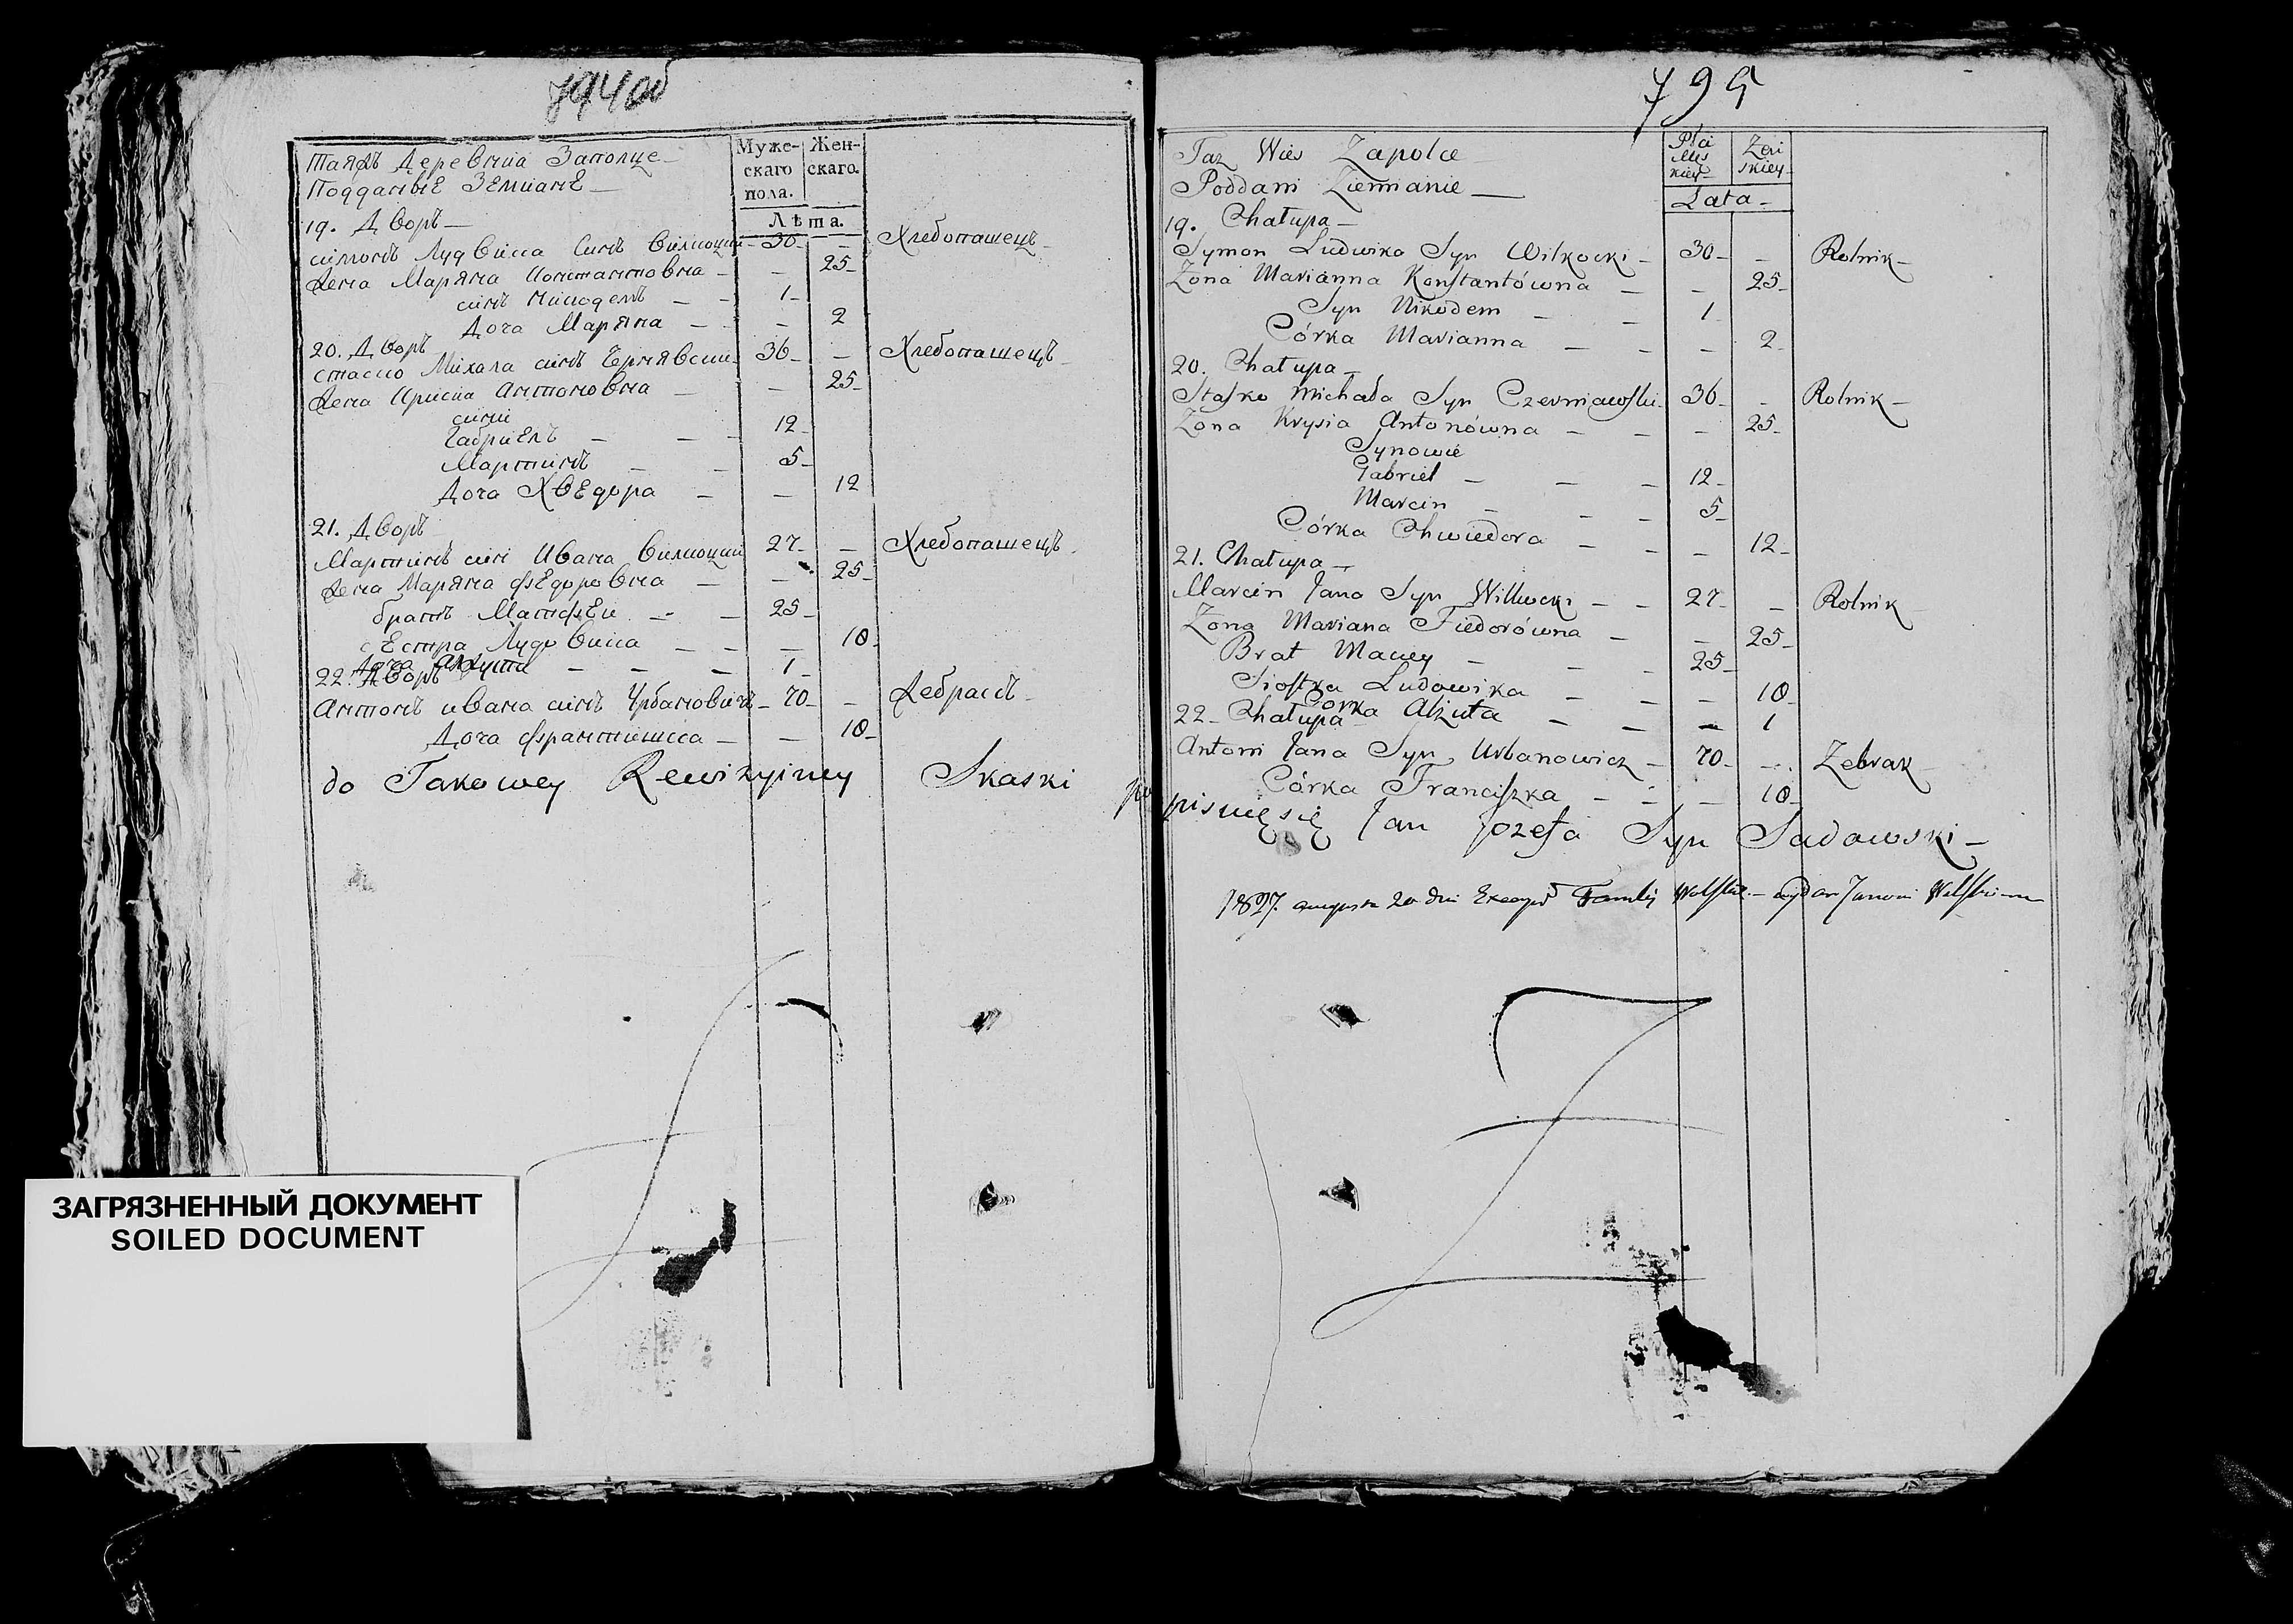 794 об
таяжъ Деревниа Заполце
Подданые Земиане
Муже-
скаго
пола.
Жен-
скаго.
Лѣта.
19. Дворъ
симонъ Лудвика Синъ Вилкоцки 30 Хлебопашецъ
Жена Маряна Константовна 25
синъ Никодемъ 1
Доча Маряна 2
20. Дворъ
стаско Михала синъ Чернявски 36 Хлебопашецъ
Жена Криска Антоновна 25
сини
Габриель 12
Мартинъ 5
Доча Хведора 12
21. Дворъ
Мартинъ син Ивана Вилкоцки 27 Хлебопашецъ
Жена Маряна Федоровна 25
братъ Матфеи 25
сестра Лудовика 10
Доча 1
22. Дворъ
Антонъ ивана синъ Урбановичъ 70 Жебракъ
Доча франтишка 10
do Takowey Rewizyiney Skaski po
795
Taz Wies Zapolce
Poddani Ziemianie
Płci
Mes
kiey
Zen
skiey
Lata
19. Chałupa
Symon Ludwika Syn Wilkocki 30 Rolnik
Zona Marianna Konstantówna 25
Syn Nikodem 1
Córka Marianna 2
20. Chałupa
Stasko Michała Syn Czerniawski 36 Rolnik
Zona Krysia Antonówna 25
Synowie
Gabriel 12
Marcin 5
Córka Chwiedora 12
21. Chałupa
Marcin Jana Syn Wilkocki 27 Rolnik
Zona Mariana Fiedorówna 25
Brat Maciey 25
Siostra Ludowika 10
Córka Alżuta 1
22. Chałupa
Antoni Jana Syn Urbanowicz 70 Zebrak
Córka Franciszka 10
pisuię się Jan Jozefa Syn Sadowski
1827 augusta 20 dni Familij wydan Janowi
ЗАГРЯЗНЕННЫЙ ДОКУМЕНТ
SOILED DOCUMENT